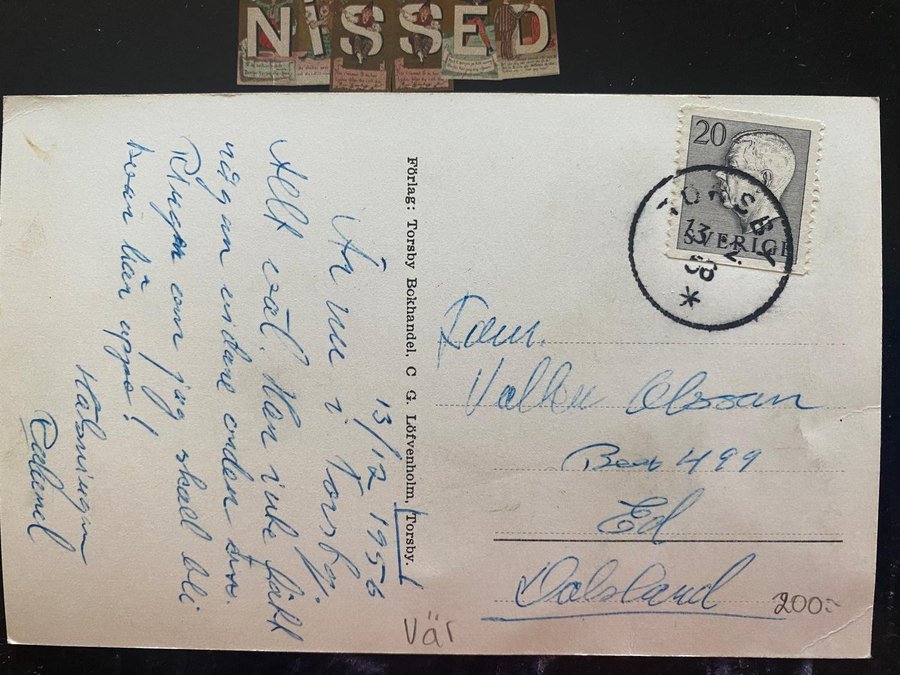 NISSED
13/12 1956
Är nu i Torsby.
Allt väl. Har inte fått
någon vidare order än.
Ringer om jag skall bli
kvar här uppe!
Hälsningar
Förlag: Torsby Bokhandel, C G. Löfvenholm, Torsby.
20
SVERIGE
TORSBY
13 12.
56
*
Fam.
Olsson
Box 499
Ed
Dalsland
200:-
Vär